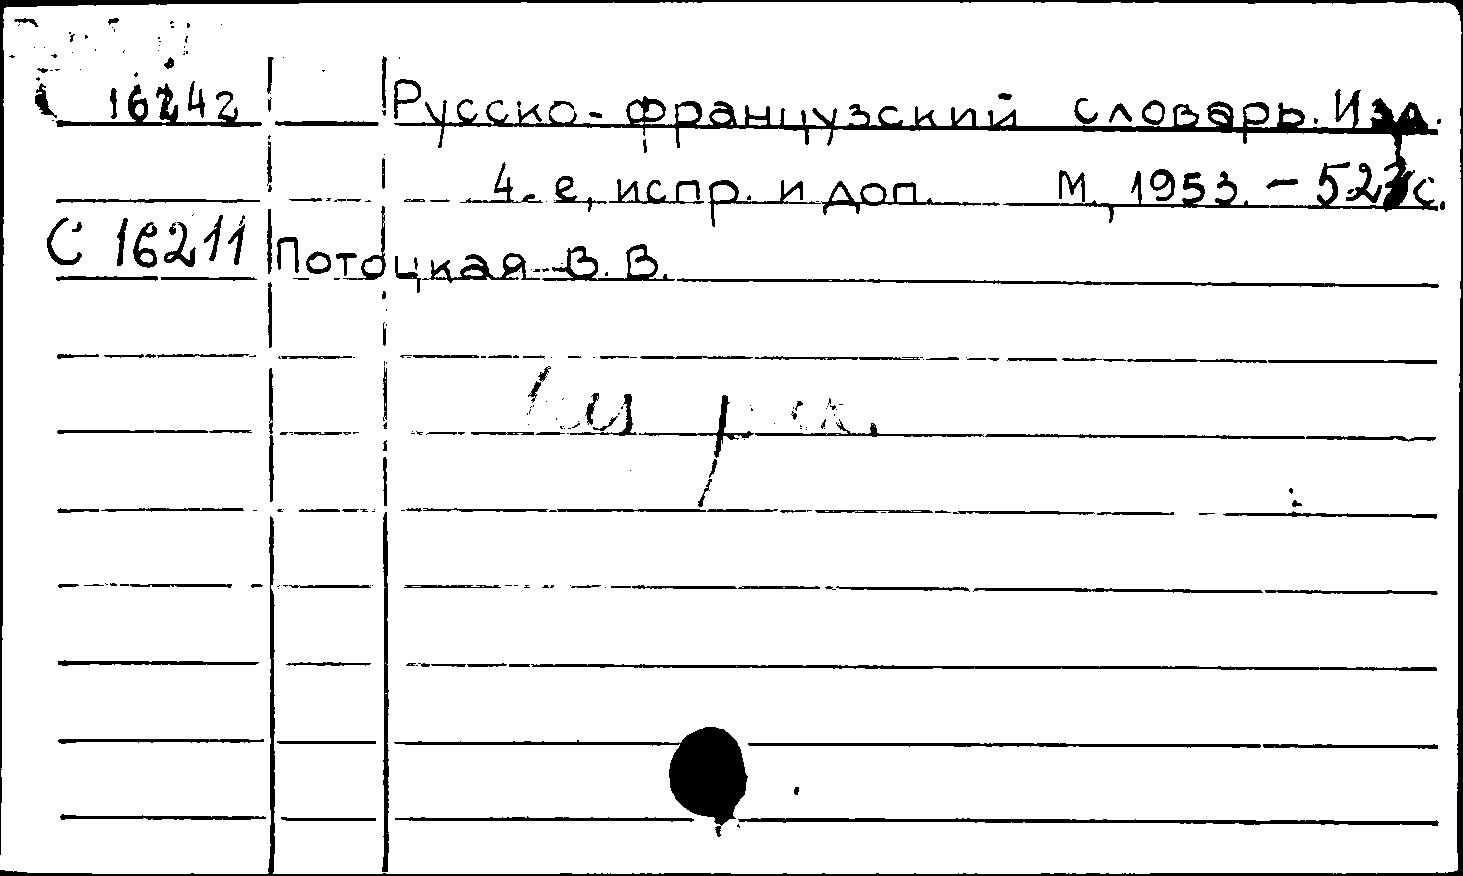 16242 Русско-французский словарь. Изд.
4-е, испр. и доп. М., 1953. - 523 с.
С 16211 Потоцкая В. В.